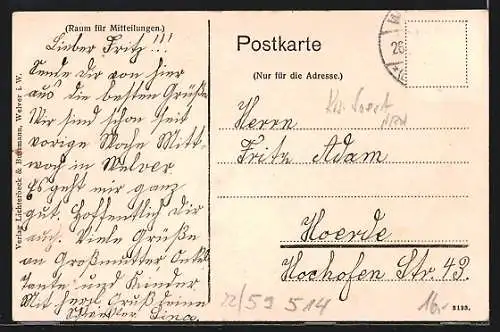 (Raum für Mitteilungen.)
Lieber Fritz!!!
Sende Dir von hier
aus die besten Grüße
Wir sind schon seit
vorige Woche Mitt-
woch in Welver.
Es geht mir ganz
gut. Hoffentlich Dir
auch. Viele Grüße
an Großmutter Onkel
Tante und Kinder
Mit herzl. Gruß deine
Schwester Lina.
Verlag Lichterbeck & Buhmann, Welver i. W.
Postkarte
(Nur für die Adresse.)
Kr. Soest
NRW
Herrn
Fritz Adam
Hoerde
Hochofen Str. 43.
22/59 514
16.-
26